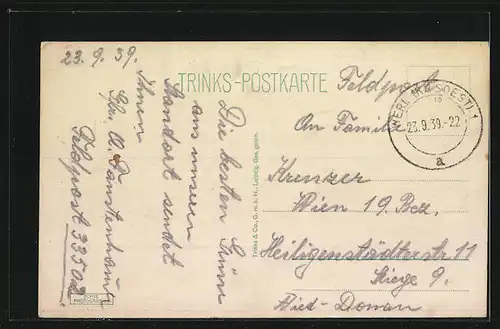 23.9.39.
TRINKS-POSTKARTE
Feldpost
WERL (KR. SOEST) 1
23.9.39.-22
a
Die besten Grüße
aus unserem
Standort sendet
Ihnen
Feldpost 33502
An Familie
Krenzer
Wien 19. Bez.
Heiligenstädterstr 11
Stiege 9.
Trinks & Co., G. m. b. H., Leipzig. Ges. gesch.